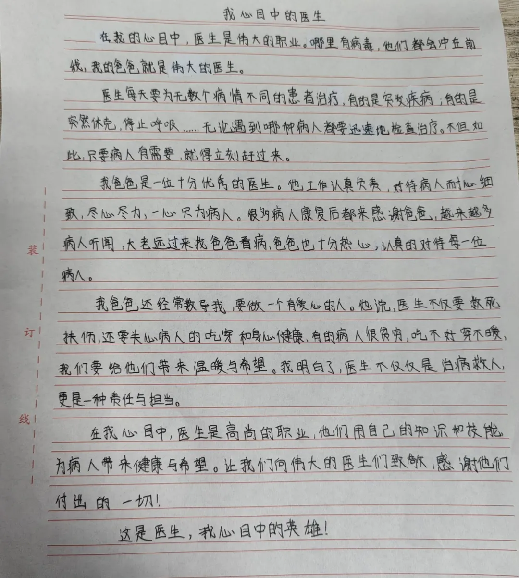 我心目中的医生
在我的心目中,医生是伟大的职业。哪里有病毒,他们都会冲在前
线,我的爸爸就是伟大的医生。
医生每天要为无数个病情不同的患者治疗,有的是突发疾病,有的是
突然休克,停止呼吸……无论遇到哪种病人都要迅速地检查治疗。不但如
此,只要病人有需要,就得立刻赶过来。
我爸爸是一位十分优秀的医生。他工作认真负责,对待病人耐心细
致,尽心尽力,一心只为病人。很多病人康复后都来感谢爸爸,越来越多
病人听闻,大老远过来找爸爸看病,爸爸也十分热心,认真的对待每一位
病人。
我爸爸还经常教导我,要做一个有爱心的人。他说,医生不仅要救死
扶伤,还要关心病人的吃穿和身心健康,有的病人很贫穷,吃不好穿不暖,
我们要给他们带来温暖与希望。我明白了,医生不仅仅是治病救人,
更是一种责任与担当。
在我心目中,医生是高尚的职业,他们用自己的知识和技能
为病人带来健康与希望。让我们向伟大的医生们致敬,感谢他们
付出的一切!
这是医生,我心目中的英雄!
装
订
线